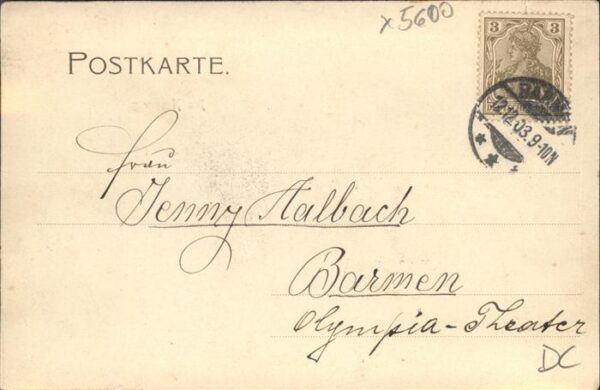 x5600
3 3
POSTKARTE.
12.12.03.9-10N
Frau
Jenny Halbach
Barmen
Olympia-Theater
DC